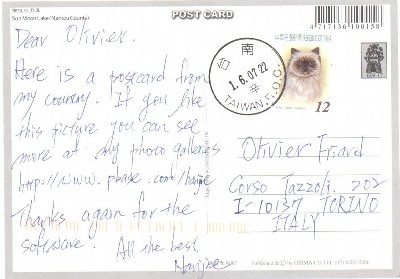 Sun Moon Lake (Nantou County)
POST CARD
4 717136 100158
Dear Olivier.
Here is a postcard from
my country. If you like
this picture you can see
more at my photo galleries
http://www.pbase.com/hanjie
Thanks again for the
software.
All the best
Hanjiee
台 南
1.6.07-22
TAIWAN, R.O.C.
12
Olivier Friard
Corso Tazzoli. 202
I-10137 TORINO
ITALY